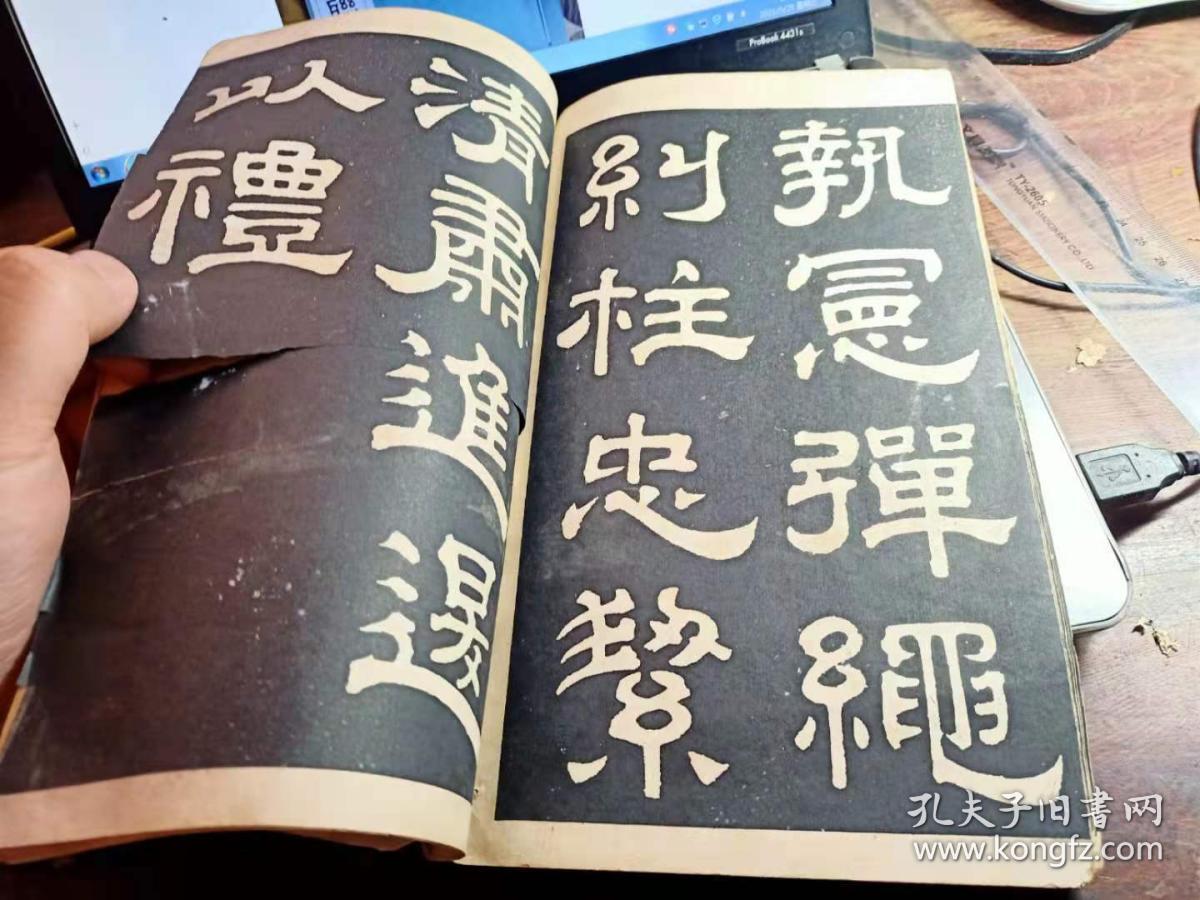 執憲彈繩
糾枉忠縶
清肅進退
以禮
ProBook 4431s
TY-2605
TONGYUAN STATIONERY CO.,LTD
孔夫子旧書网
www.kongfz.com